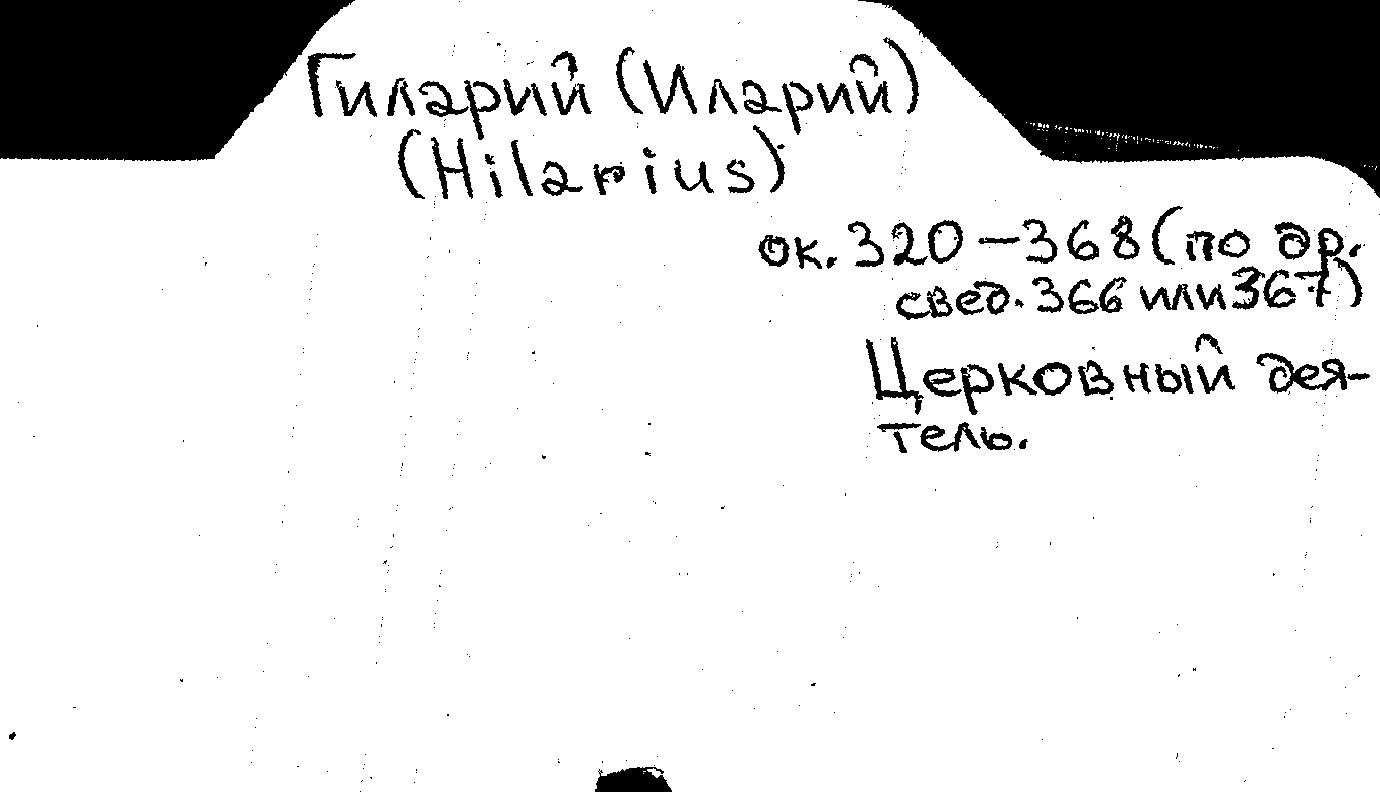 Гиларий (Иларий)
(Hilarius)
ок. 320 – 368 (по др.
свед. 366 или 367)
Церковный дея-
тель.